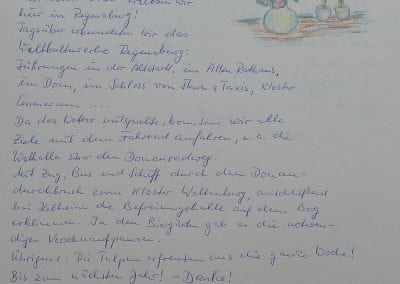 hier in Regensburg!
Tagsüber erkundeten wir das
Weltkulturerbe Regensburg:
Führungen in der Altstadt, im Alten Rathaus,
im Dom, im Schloss von Thurn & Taxis, Kloster
Emmeram ....
Da das Wetter mitspielte, konnten wir alle
Ziele mit dem Fahrrad anfahren, u.a. die
Walhalla über den Donauradweg.
Mit Zug, Bus und Schiff durch dem Donau-
durchbruch zum Kloster Weltenburg, anschließend
bei Kelheim die Befreiungshalle auf dem Berg
erklimmen. In den Biergärten gab es die notwen-
digen Verschnaufpausen.
Übrigens: Die Tulpen erfreuten uns die ganze Woche!
Bis zum nächsten Jahr! - Danke!